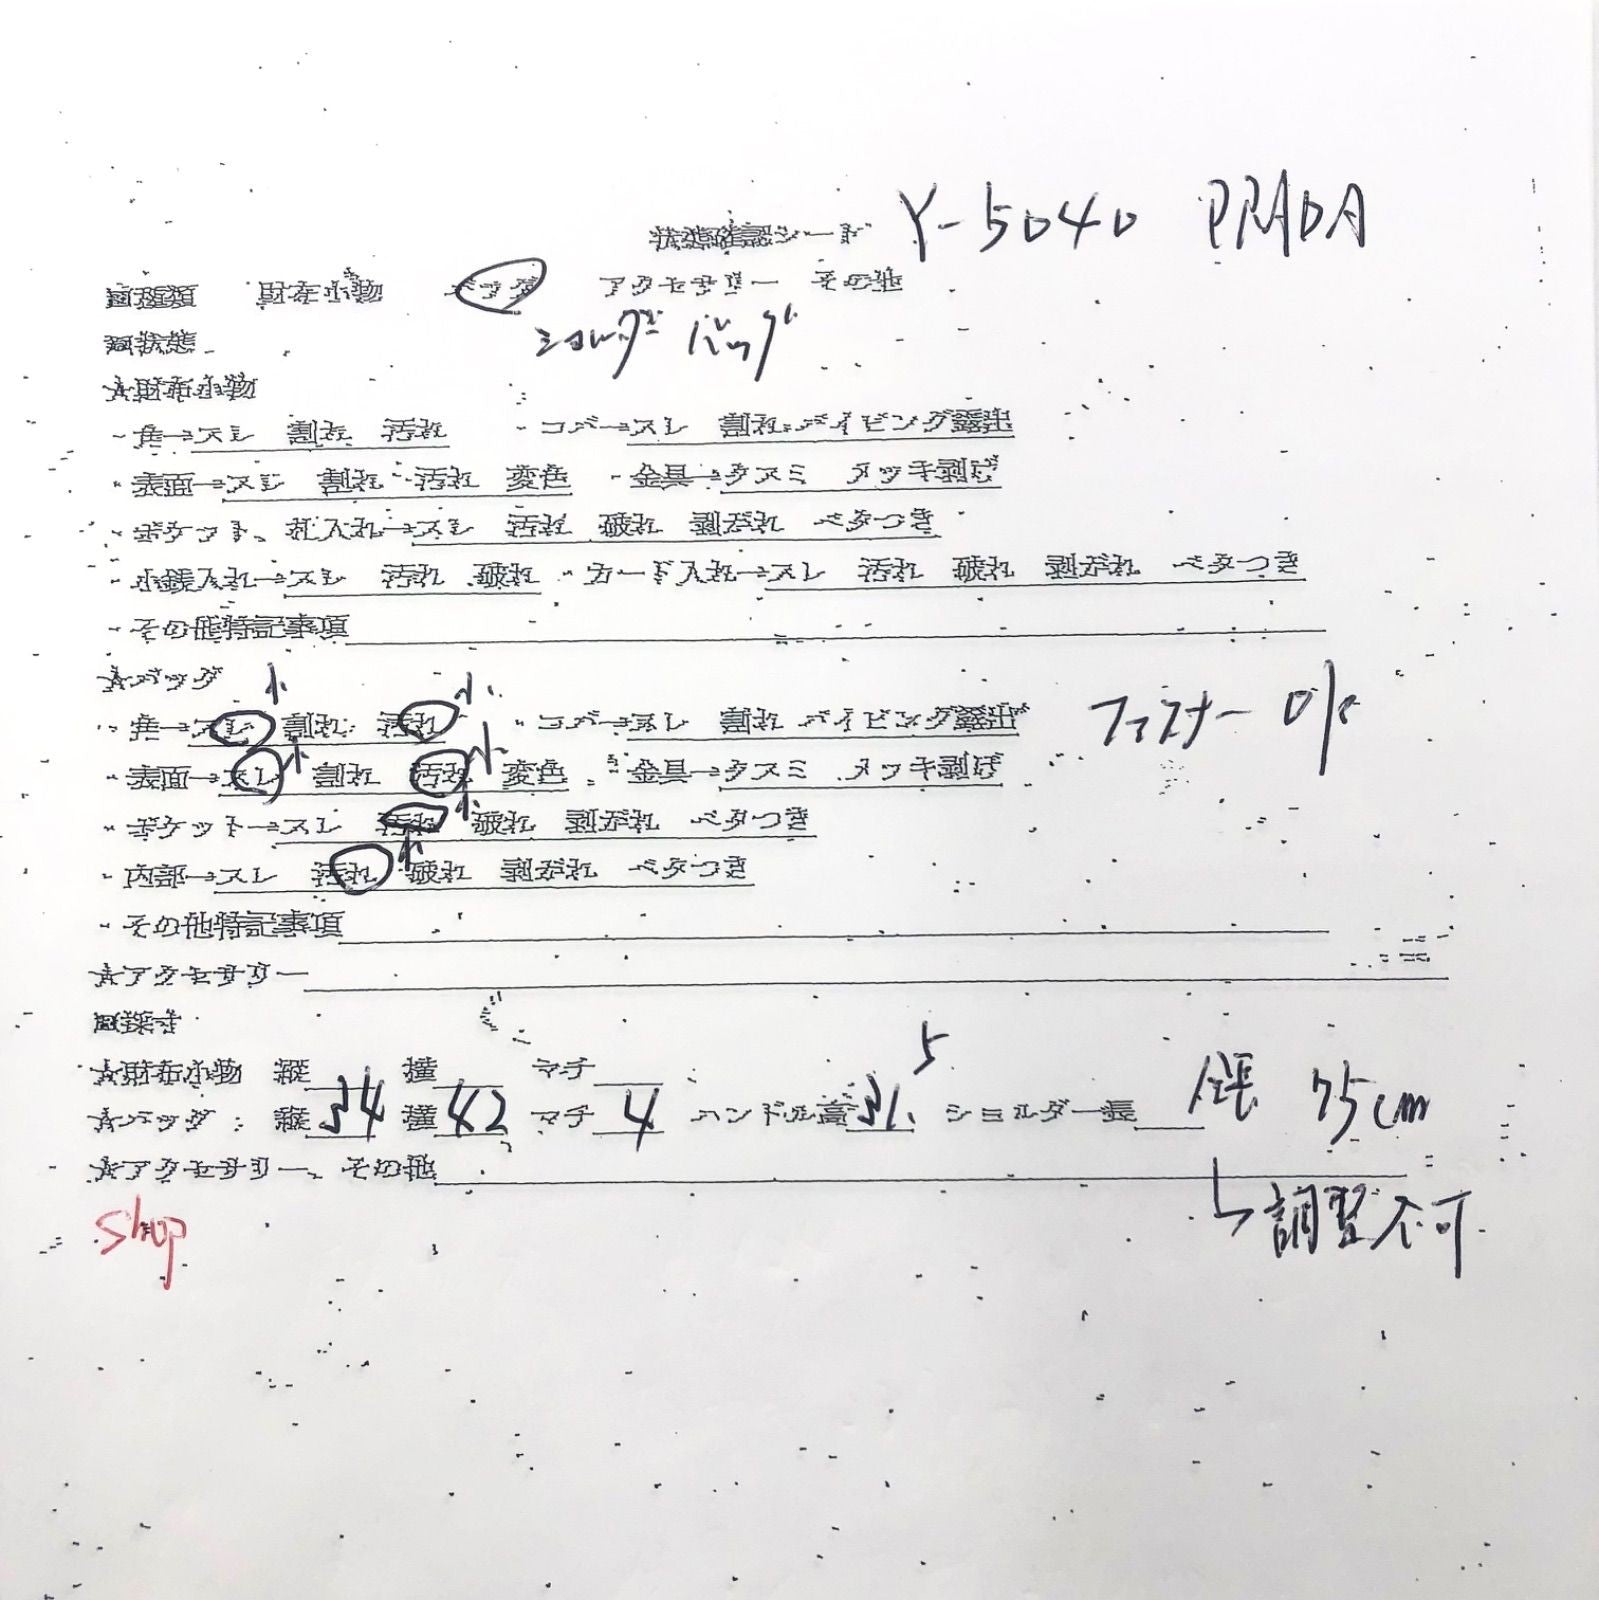 状態確認シート Y-5040 PRADA
■種類 財布小物 バッグ アクセサリー その他
ショルダーバッグ
■状態
★財布小物
・角→スレ 割れ 汚れ ・コバ→スレ 割れ パイピング露出
・表面→スレ 割れ 汚れ 変色 ・金具→クスミ メッキ剥げ
・ポケット、札入れ→スレ 汚れ 破れ 剥がれ ベタつき
・小銭入れ→スレ 汚れ 破れ ・カード入れ→スレ 汚れ 破れ 剥がれ ベタつき
・その他特記事項
★バッグ 小 小
・角→スレ 割れ 汚れ ・コバ→スレ 割れ パイピング露出 ファスナー OK
小 小
・表面→スレ 割れ 汚れ 変色 ・金具→クスミ メッキ剥げ
・ポケット→スレ 汚れ 小 破れ 剥がれ ベタつき
・内部→スレ 汚れ 小 破れ 剥がれ ベタつき
・その他特記事項
★アクセサリー
■採寸
★財布小物 縦 横 マチ
★バッグ : 縦34 横42 マチ 4 ハンドル高31.5 ショルダー長 全長 75cm
★アクセサリー、その他
↳調整不可
shop